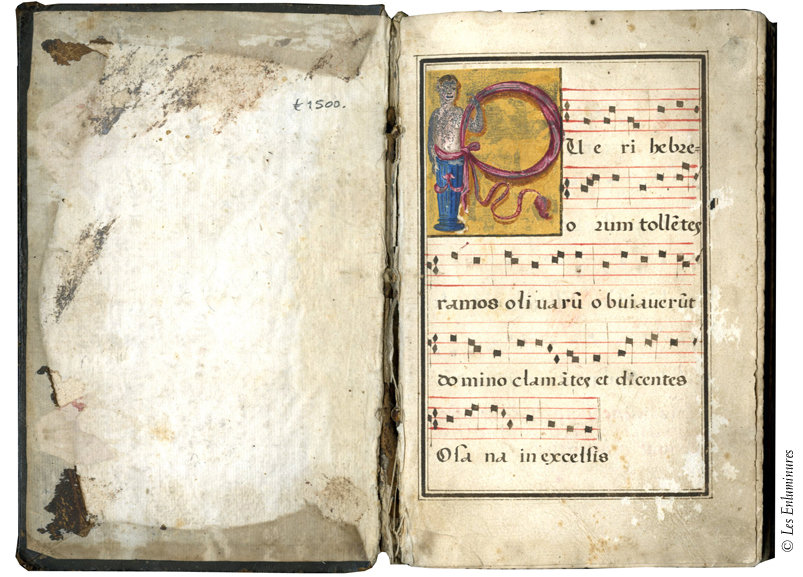 €1500.
P
U e ri hebre-
o rum tollẽtes
ramos oli uarũ o buiauerũt
do mino clamãtes et dicentes
Osa na in excelsis
© Les Enluminures